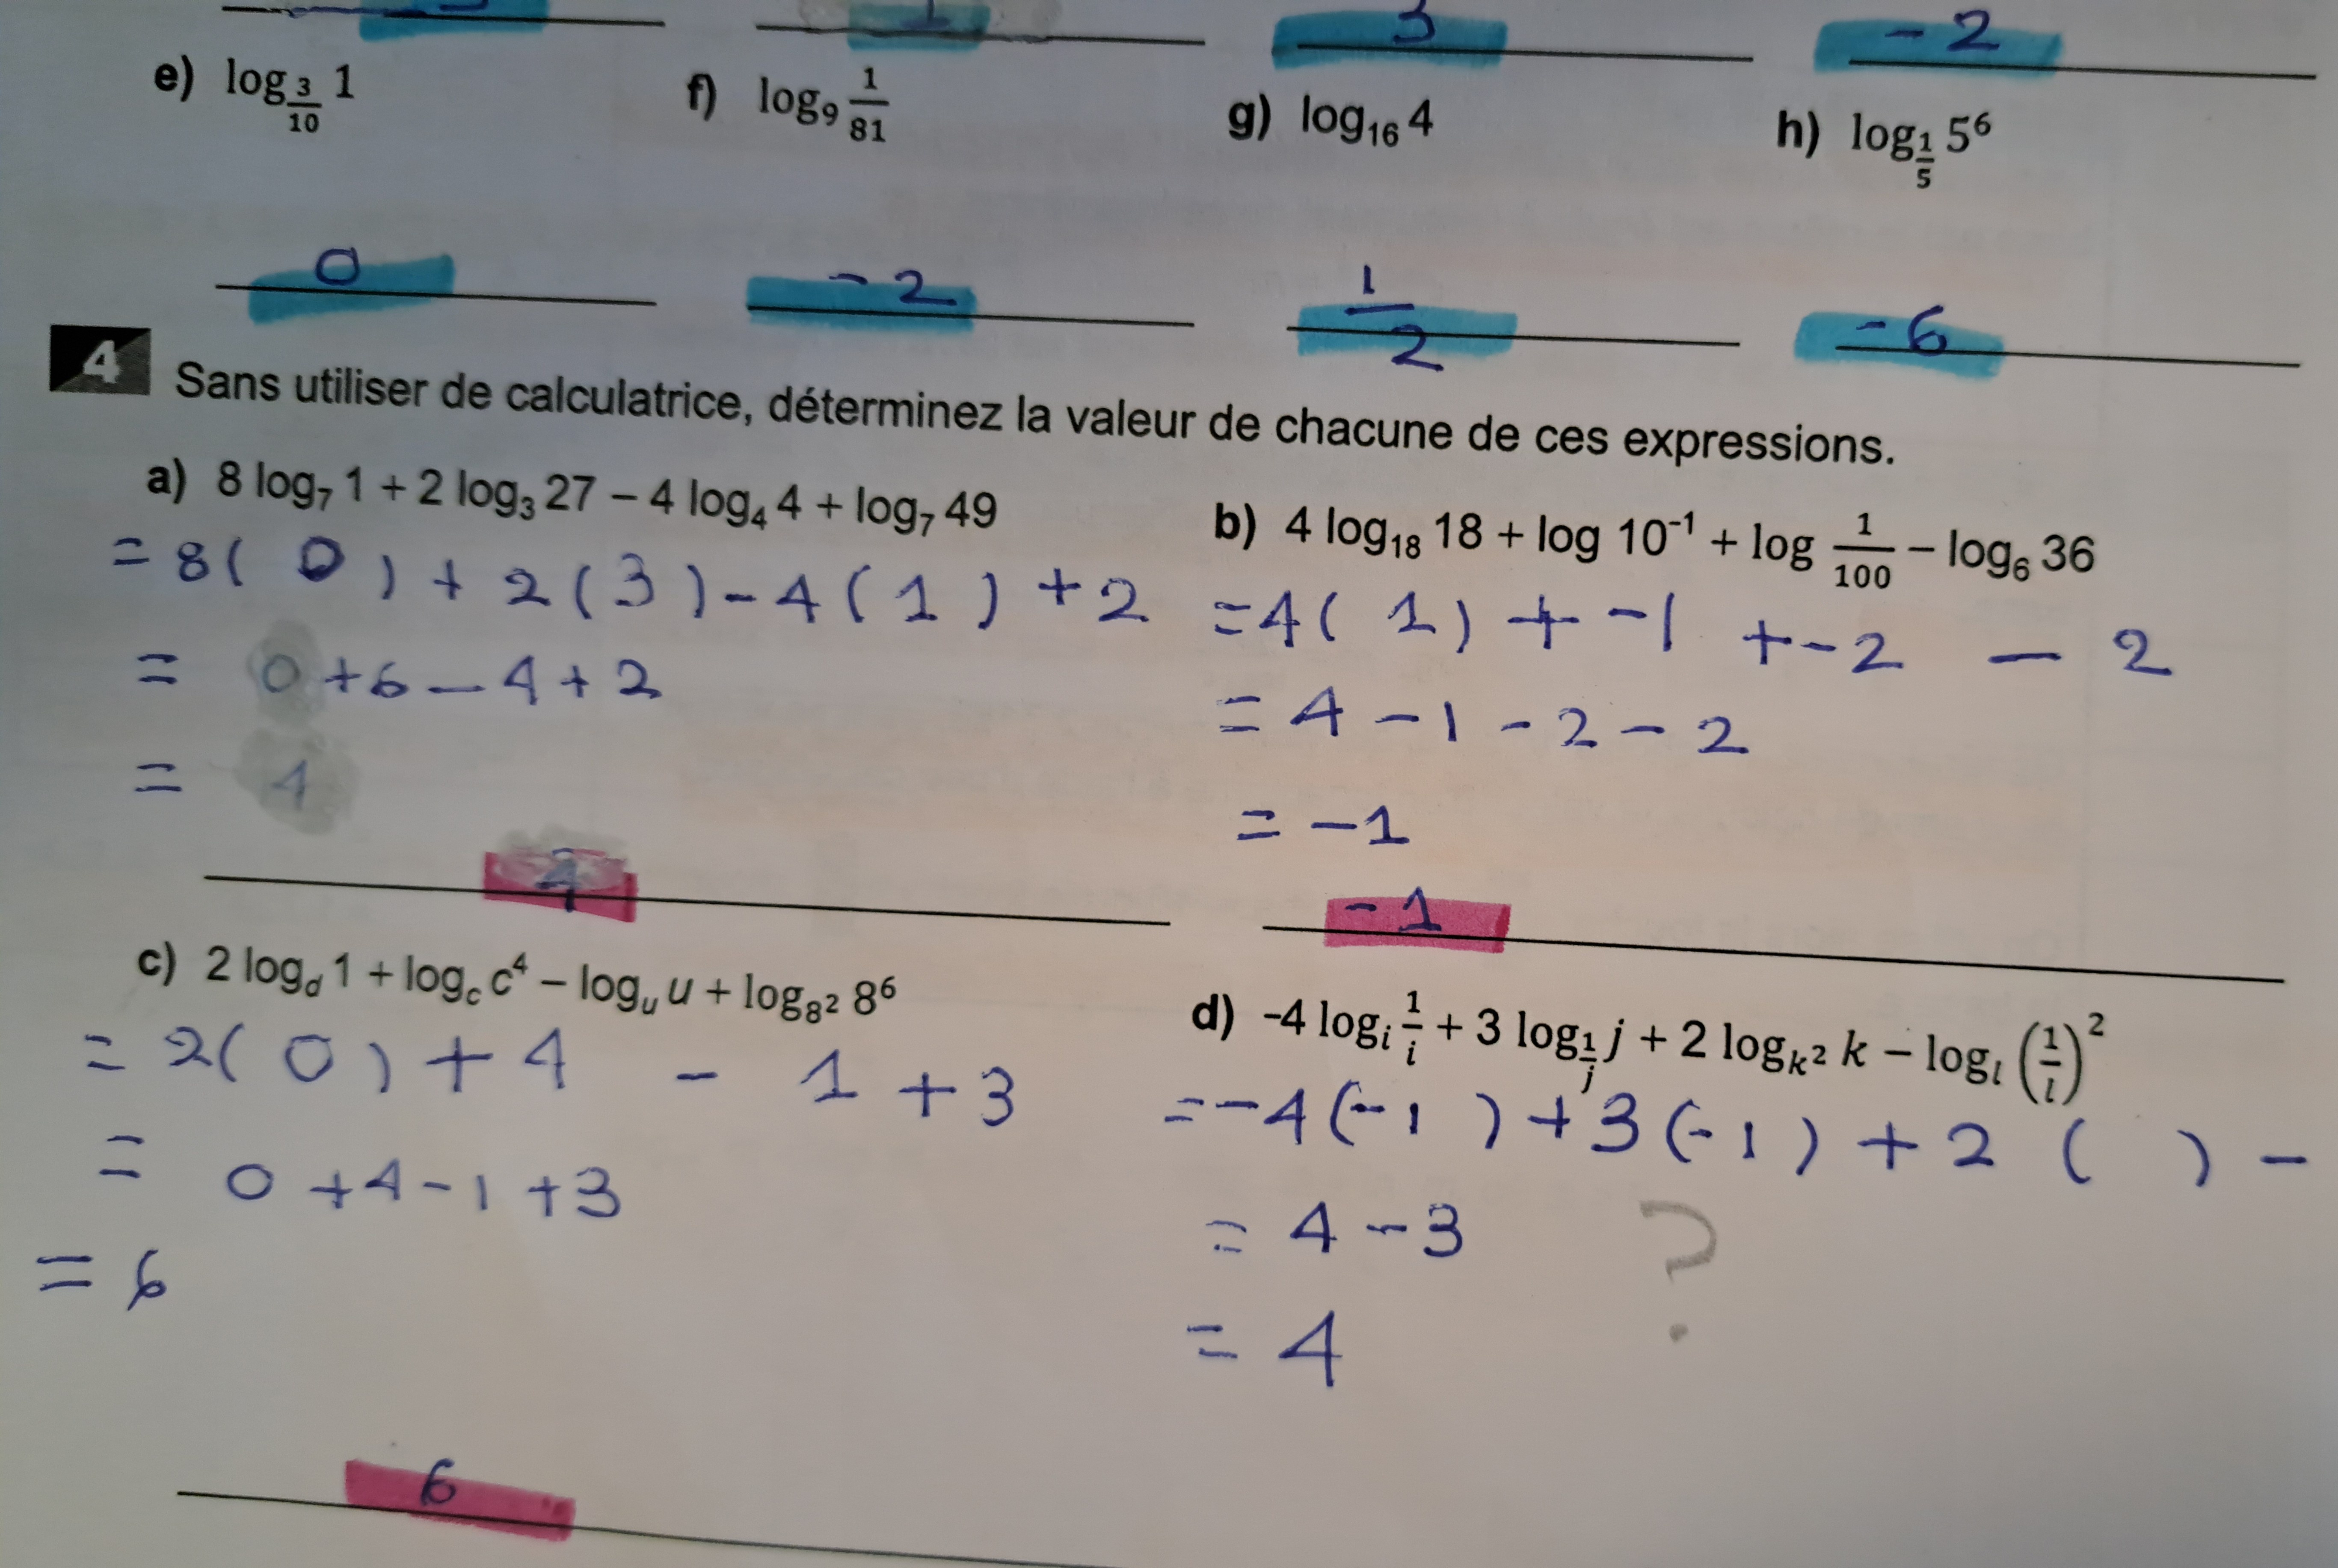 3 1 3 - 2
e) log_{3/10} 1 f) log_9 1/81 g) log_{16} 4 h) log_{1/5} 5^6
0 - 2 1/2 - 6
4 Sans utiliser de calculatrice, déterminez la valeur de chacune de ces expressions.
a) 8 log_7 1 + 2 log_3 27 – 4 log_4 4 + log_7 49
= 8( 0 ) + 2 ( 3 ) - 4 ( 1 ) + 2
= 0 + 6 - 4 + 2
= 4
4
b) 4 log_{18} 18 + log 10^{-1} + log 1/100 – log_6 36
= 4( 1 ) + -1 + -2 - 2
= 4 - 1 - 2 - 2
= -1
- 1
c) 2 log_d 1 + log_c c^4 – log_u u + log_{8^2} 8^6
= 2( 0 ) + 4 - 1 + 3
= 0 + 4 - 1 + 3
= 6
6
d) -4 log_i 1/i + 3 log_{1/j} j + 2 log_{k^2} k – log_l (1/l)^2
= -4 (-1 ) + 3 (-1 ) + 2 ( ) -
= 4 - 3 ?
= 4